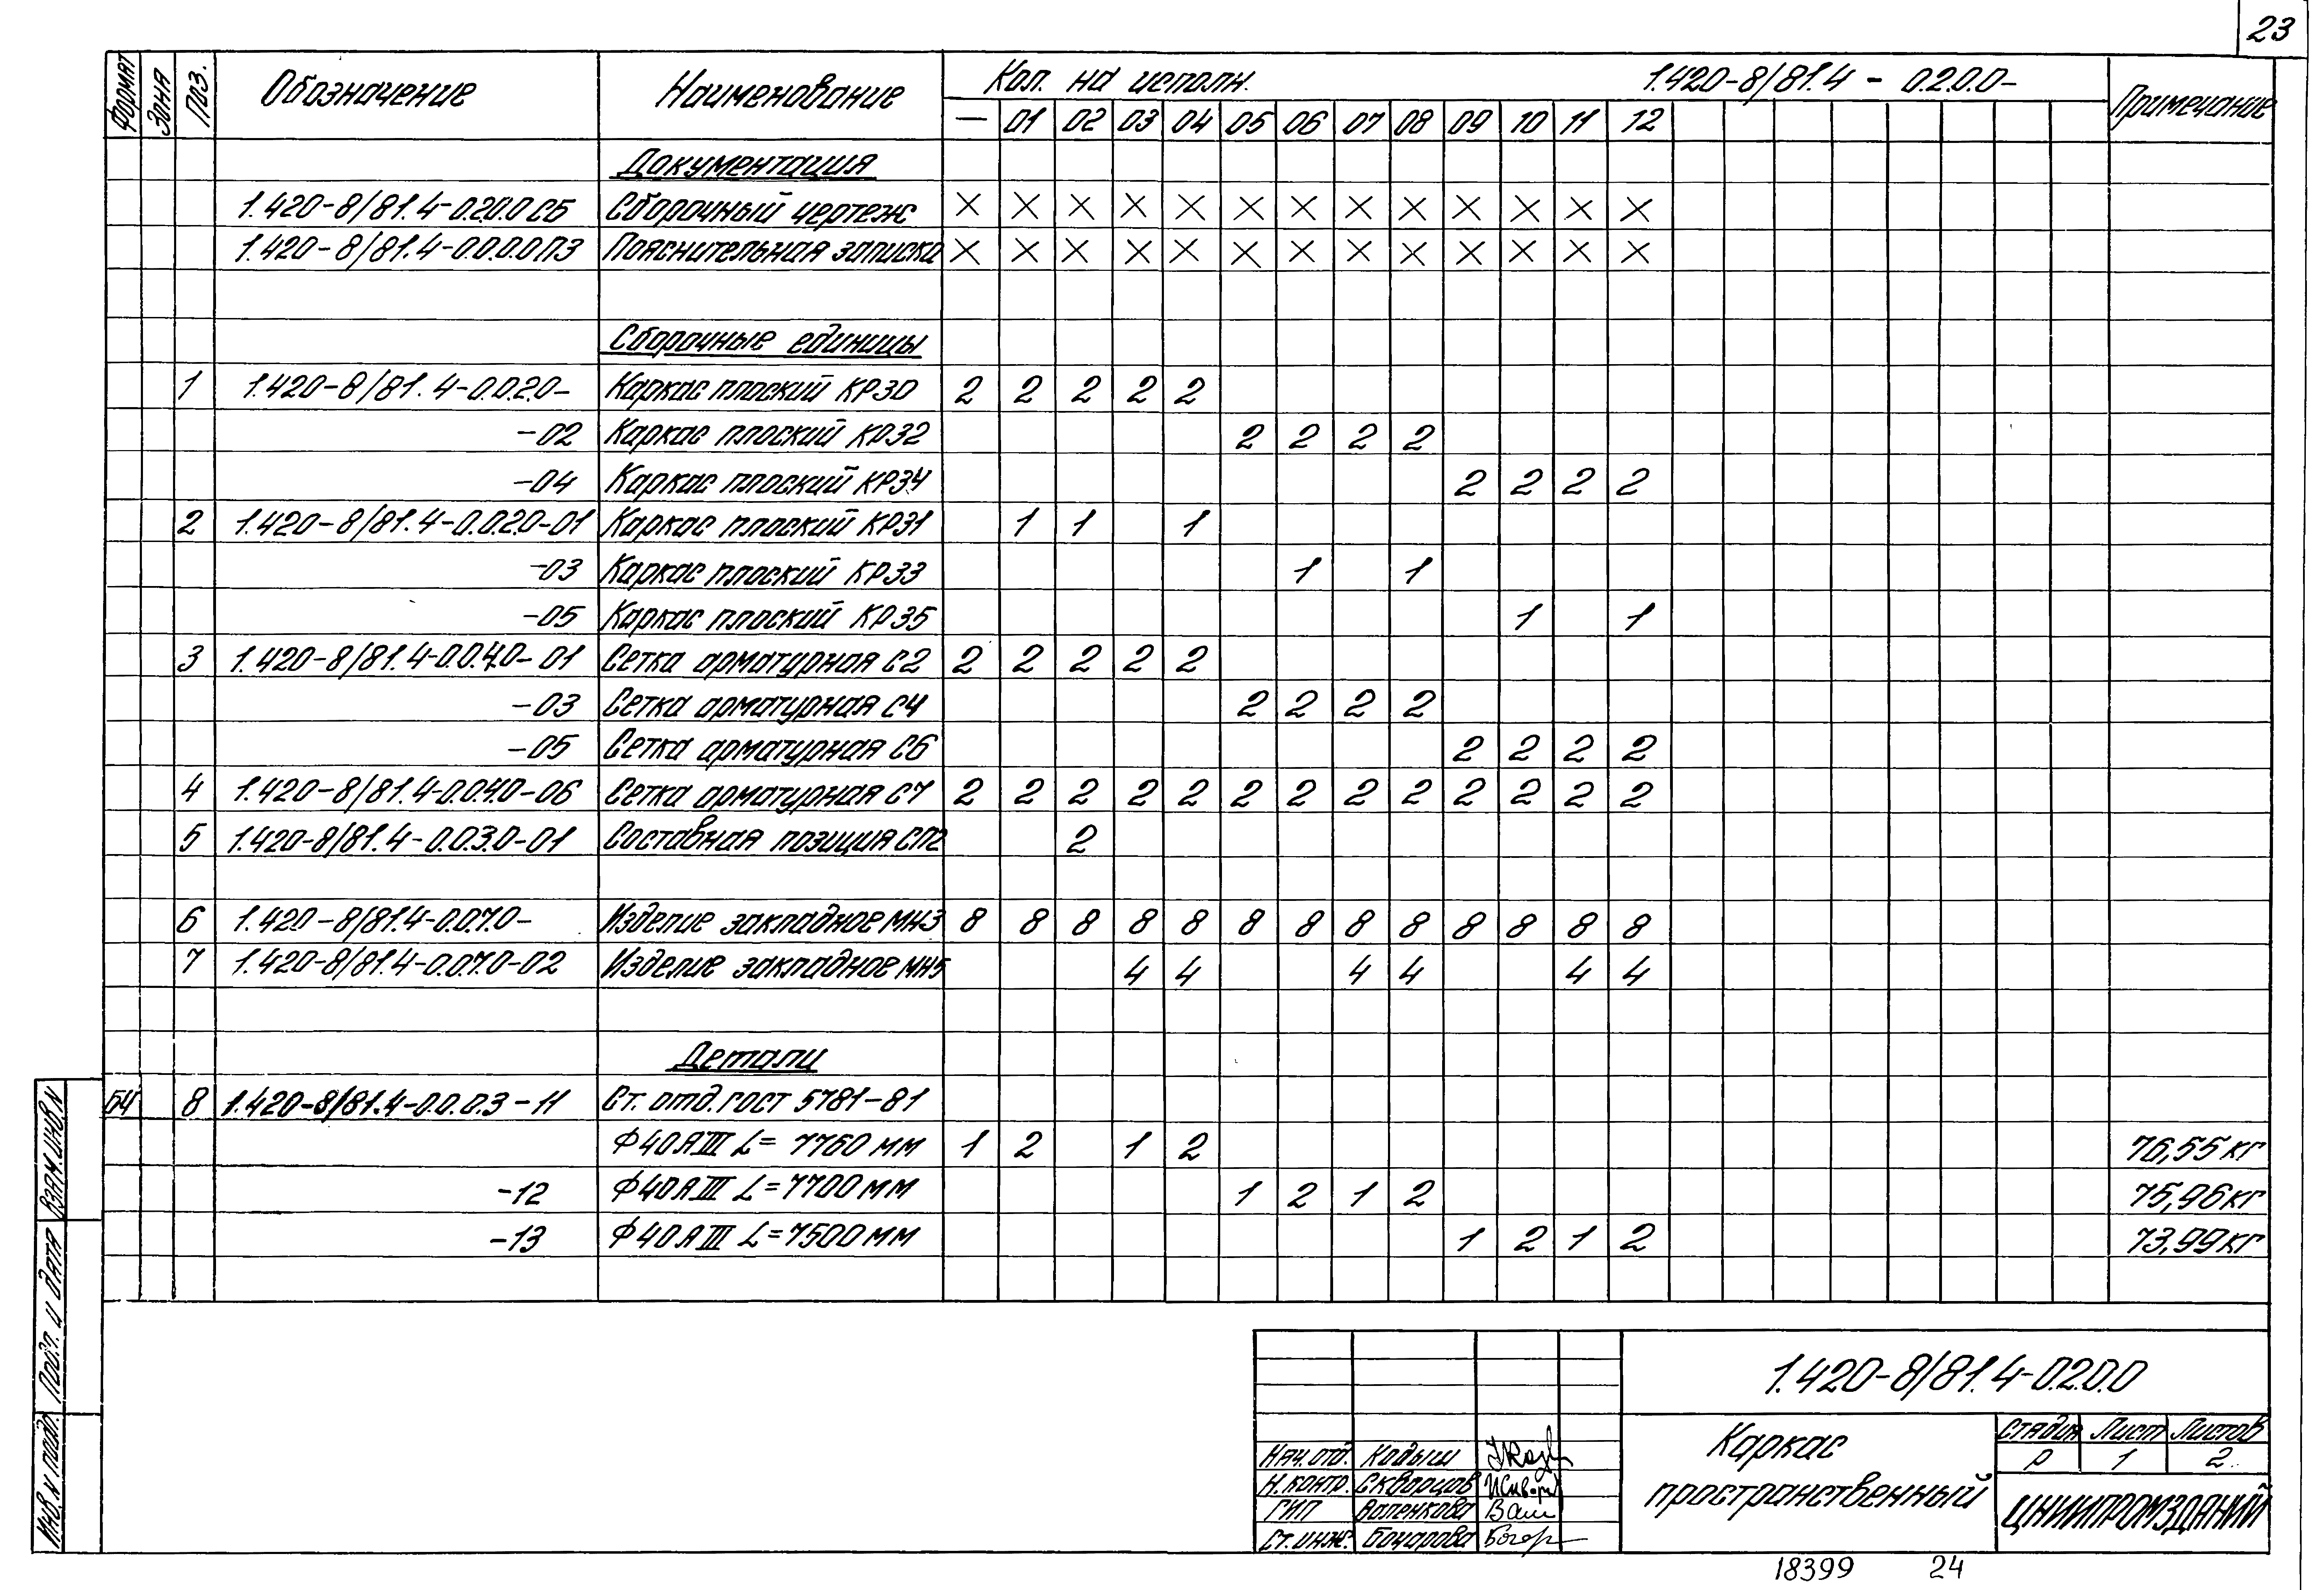 23
Формат Зона Поз. Обозначение Наименование Кол. на исполн. 1.420-8/81.4 - 0.2.0.0- Примечание
— 01 02 03 04 05 06 07 08 09 10 11 12
Документация
1.420-8/81.4-0.2.0.0 СБ Сборочный чертеж × × × × × × × × × × × × ×
1.420-8/81.4-0.0.0.0 ПЗ Пояснительная записка × × × × × × × × × × × × ×
Сборочные единицы
1 1.420-8/81.4-0.0.2.0- Каркас плоский КР30 2 2 2 2 2
-02 Каркас плоский КР32 2 2 2 2
-04 Каркас плоский КР34 2 2 2 2
2 1.420-8/81.4-0.0.2.0-01 Каркас плоский КР31 1 1 1
-03 Каркас плоский КР33 1 1
-05 Каркас плоский КР35 1 1
3 1.420-8/81.4-0.0.4.0-01 Сетка арматурная С2 2 2 2 2 2
-03 Сетка арматурная С4 2 2 2 2
-05 Сетка арматурная С6 2 2 2 2
4 1.420-8/81.4-0.0.4.0-06 Сетка арматурная С7 2 2 2 2 2 2 2 2 2 2 2 2 2
5 1.420-8/81.4-0.0.3.0-01 Составная позиция СП2 2
6 1.420-8/81.4-0.0.7.0- Изделие закладное МН3 8 8 8 8 8 8 8 8 8 8 8 8 8
7 1.420-8/81.4-0.0.7.0-02 Изделие закладное МН5 4 4 4 4 4 4
Детали
БЧ 8 1.420-8/81.4-0.0.0.3-11 Ст. отд. ГОСТ 5781-81
Ф40АIII L=7760 мм 1 2 1 2 76,55 кг
-12 Ф40АIII L=7700 мм 1 2 1 2 75,96 кг
-13 Ф40АIII L=7500 мм 1 2 1 2 73,99 кг
Взам. инв. N
Подп. и дата
Инв. N подл.
1.420-8/81.4-0.2.0.0
Каркас пространственный
Стадия Лист Листов
Р 1 2
ЦНИИПРОМЗДАНИЙ
Нач. отд. Кодыш
Н. контр. Скворцов
ГИП Валенкова
Ст. инж. Бочарова
18399 24